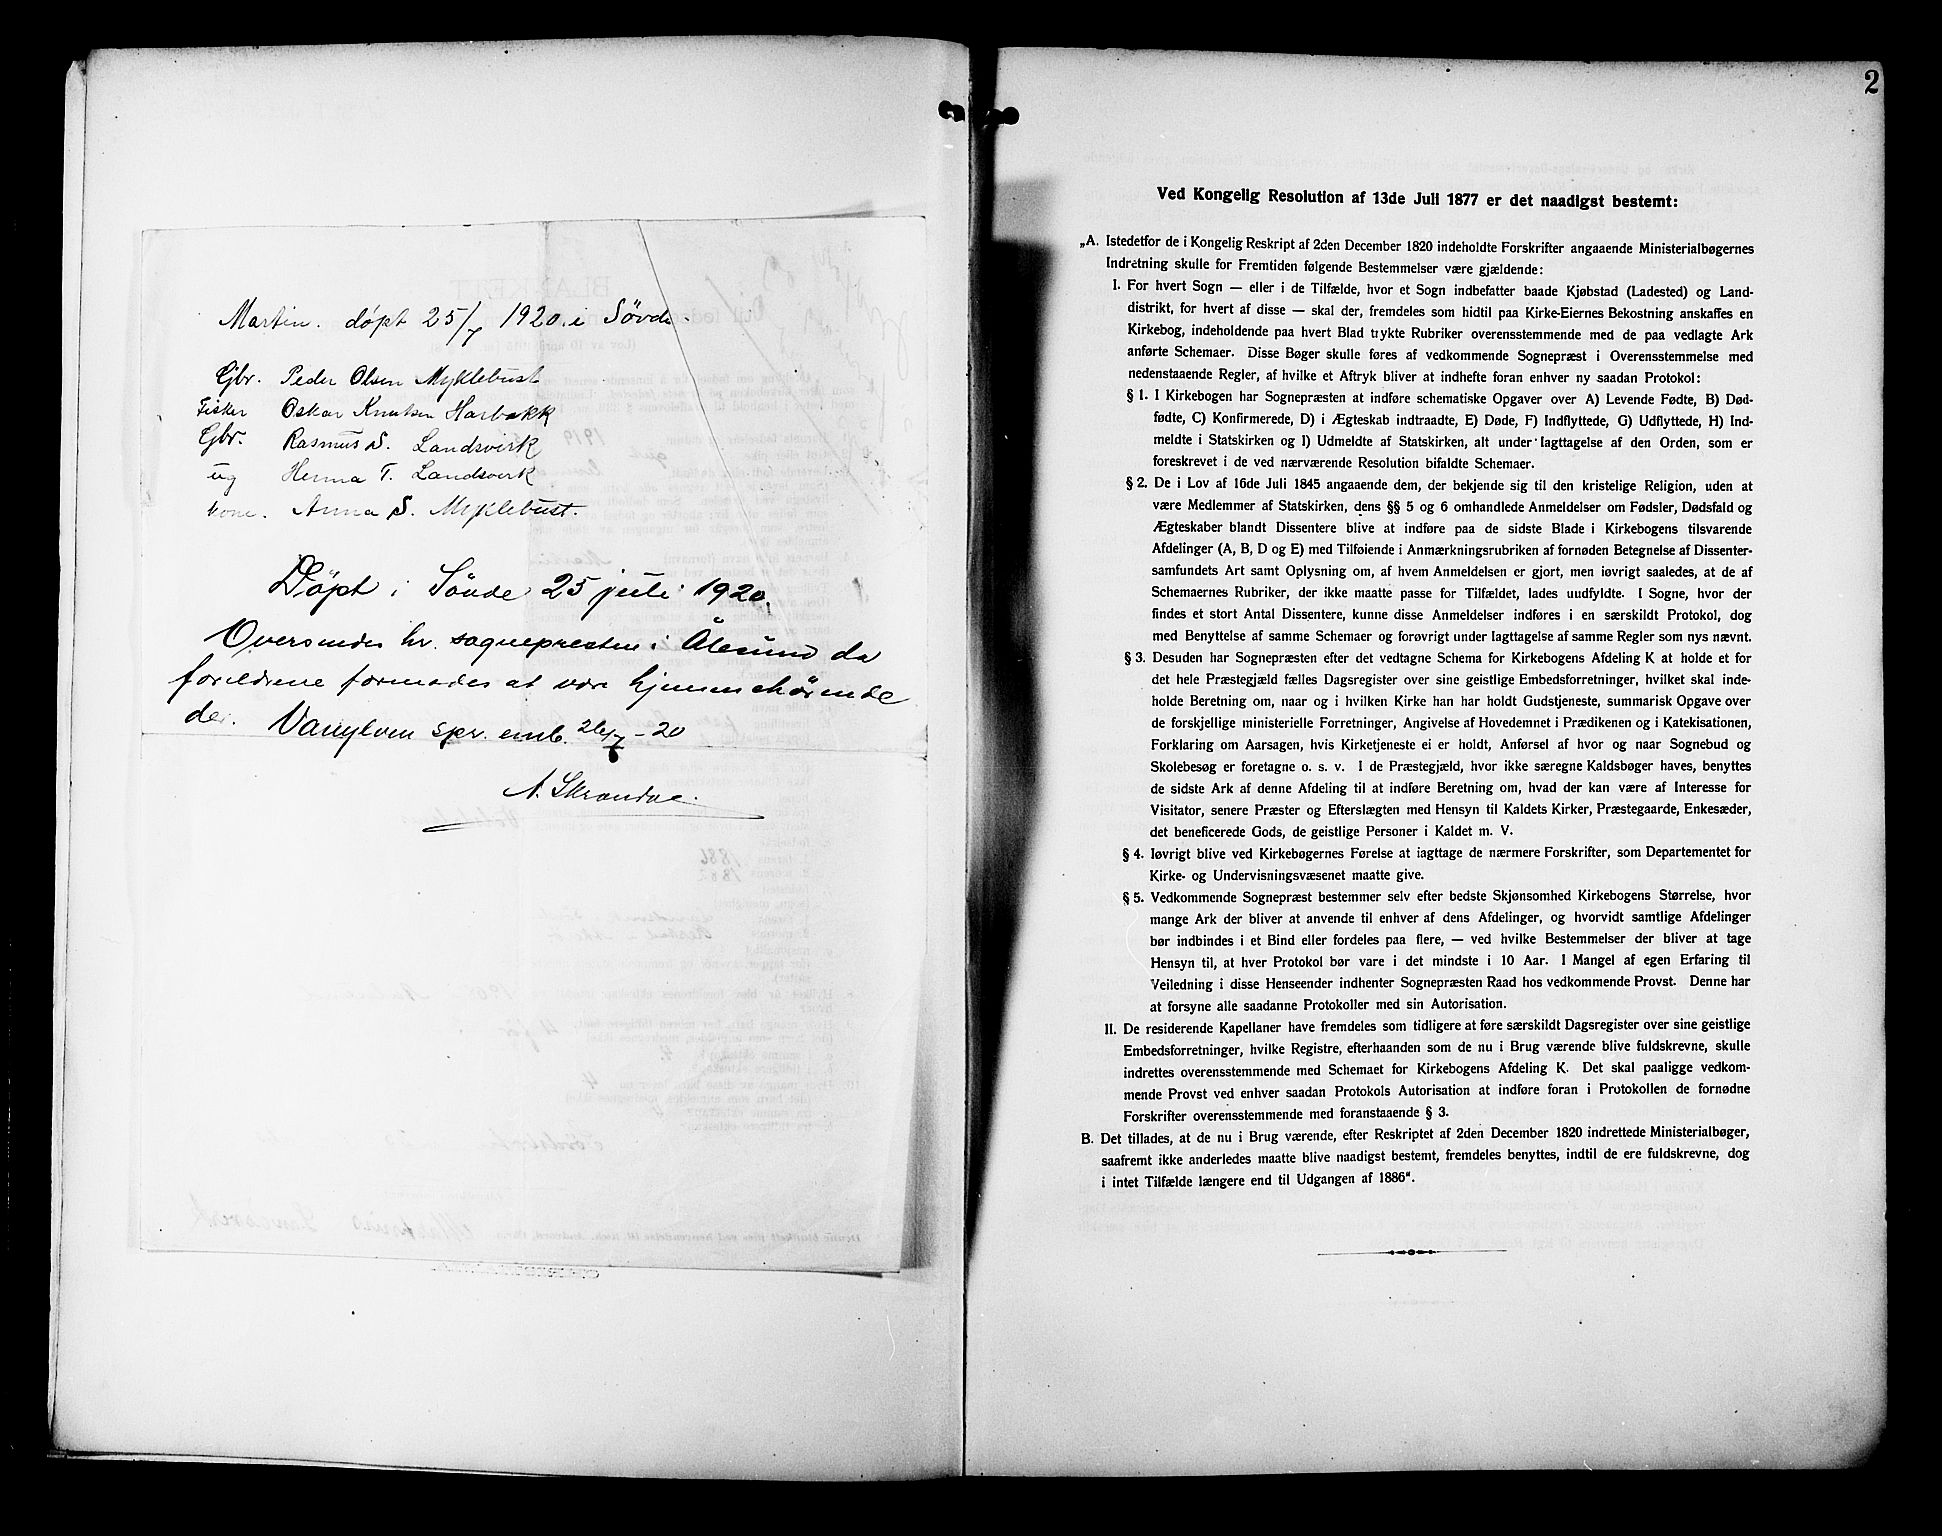 Martin. døpt 25/7 1920 i Søvde.
Gbr. Peder Olsen Myklebust
Fisker Oskar Knutsen Harbakk
Gbr. Rasmus S. Landsvirk
ug Herma T. Landsverk
kone. Anna S. Myklebust.
Døpt i Søvde 25 juli 1920.
Oversendes hr. sognepresten i Ålesund da
foreldrene formodes at være hjemmehørende
der. Vanylven spr. emb. 26/7-20
A. Skrondal.
2
Ved Kongelig Resolution af 13de Juli 1877 er det naadigst bestemt:
„A. Istedetfor de i Kongelig Reskript af 2den December 1820 indeholdte Forskrifter angaaende Ministerialbøgernes
Indretning skulle for Fremtiden følgende Bestemmelser være gjældende:
I. For hvert Sogn — eller i de Tilfælde, hvor et Sogn indbefatter baade Kjøbstad (Ladested) og Land-
distrikt, for hvert af disse — skal der, fremdeles som hidtil paa Kirke-Eiernes Bekostning anskaffes en
Kirkebog, indeholdende paa hvert Blad trykte Rubriker overensstemmende med de paa vedlagte Ark
anførte Schemaer. Disse Bøger skulle føres af vedkommende Sognepræst i Overensstemmelse med
nedenstaaende Regler, af hvilke et Aftryk bliver at indhefte foran enhver ny saadan Protokol:
§ 1. I Kirkebogen har Sognepræsten at indføre schematiske Opgaver over A) Levende Fødte, B) Død-
fødte, C) Konfirmerede, D) i Ægteskab indtraadte, E) Døde, F) Indflyttede, G) Udflyttede, H) Ind-
meldte i Statskirken og I) Udmeldte af Statskirken, alt under Iagttagelse af den Orden, som er
foreskrevet i de ved nærværende Resolution bifaldte Schemaer.
§ 2. De i Lov af 16de Juli 1845 angaaende dem, der bekjende sig til den kristelige Religion, uden at
være Medlemmer af Statskirken, dens §§ 5 og 6 omhandlede Anmeldelser om Fødsler, Dødsfald og
Ægteskaber blandt Dissentere blive at indføre paa de sidste Blade i Kirkebogens tilsvarende
Afdelinger (A, B, D og E) med Tilføiende i Anmærkningsrubriken af fornøden Betegnelse af Dissenter-
samfundets Art samt Oplysning om, af hvem Anmeldelsen er gjort, men iøvrigt saaledes, at de af
Schemaernes Rubriker, der ikke maatte passe for Tilfældet, lades uudfyldte. I Sogne, hvor der
findes et stort Antal Dissentere, kunne disse Anmeldelser indføres i en særskildt Protokol, dog
med Benyttelse af samme Schemaer og forøvrigt under Iagttagelse af samme Regler som nys nævnt.
§ 3. Desuden har Sognepræsten efter det vedtagne Schema for Kirkebogens Afdeling K at holde et for
det hele Præstegjæld fælles Dagsregister over sine geistlige Embedsforretninger, hvilket skal inde-
holde Beretning om, naar og i hvilken Kirke han har holdt Gudstjeneste, summarisk Opgave over
de forskjellige ministerielle Forretninger, Angivelse af Hovedemnet i Prædikenen og i Katekisationen,
Forklaring om Aarsagen, hvis Kirketjeneste ei er holdt, Anførsel af hvor og naar Sognebud og
Skolebesøg er foretagne o. s. v. I de Præstegjæld, hvor ikke særegne Kaldsbøger haves, benyttes
de sidste Ark af denne Afdeling til at indføre Beretning om, hvad der kan være af Interesse for
Visitator, senere Præster og Efterslægten med Hensyn til Kaldets Kirker, Præstegaarde, Enkesæder,
det beneficerede Gods, de geistlige Personer i Kaldet m. V.
§ 4. Iøvrigt blive ved Kirkebøgernes Førelse at iagttage de nærmere Forskrifter, som Departementet for
Kirke- og Undervisningsvæsenet maatte give.
§ 5. Vedkommende Sognepræst bestemmer selv efter bedste Skjønsomhed Kirkebogens Størrelse, hvor
mange Ark der bliver at anvende til enhver af dens Afdelinger, og hvorvidt samtlige Afdelinger
bør indbindes i et Bind eller fordeles paa flere, — ved hvilke Bestemmelser der bliver at tage
Hensyn til, at hver Protokol bør vare i det mindste i 10 Aar. I Mangel af egen Erfaring til
Veiledning i disse Henseender indhenter Sognepræsten Raad hos vedkommende Provst. Denne har
at forsyne alle saadanne Protokoller med sin Autorisation.
II. De residerende Kapellaner have fremdeles som tidligere at føre særskildt Dagsregister over sine geistlige
Embedsforretninger, hvilke Registre, efterhaanden som de nu i Brug værende blive fuldskrevne, skulle
indrettes overensstemmende med Schemaet for Kirkebogens Afdeling K. Det skal paaligge vedkom-
mende Provst ved enhver saadan Protokols Autorisation at indføre foran i Protokollen de fornødne
Forskrifter overensstemmende med foranstaaende § 3.
B. Det tillades, at de nu i Brug værende, efter Reskriptet af 2den December 1820 indrettede Ministerialbøger,
saafremt ikke anderledes maatte blive naadigst bestemt, fremdeles benyttes, indtil de ere fuldskrevne, dog
i intet Tilfælde længere end til Udgangen af 1886“.